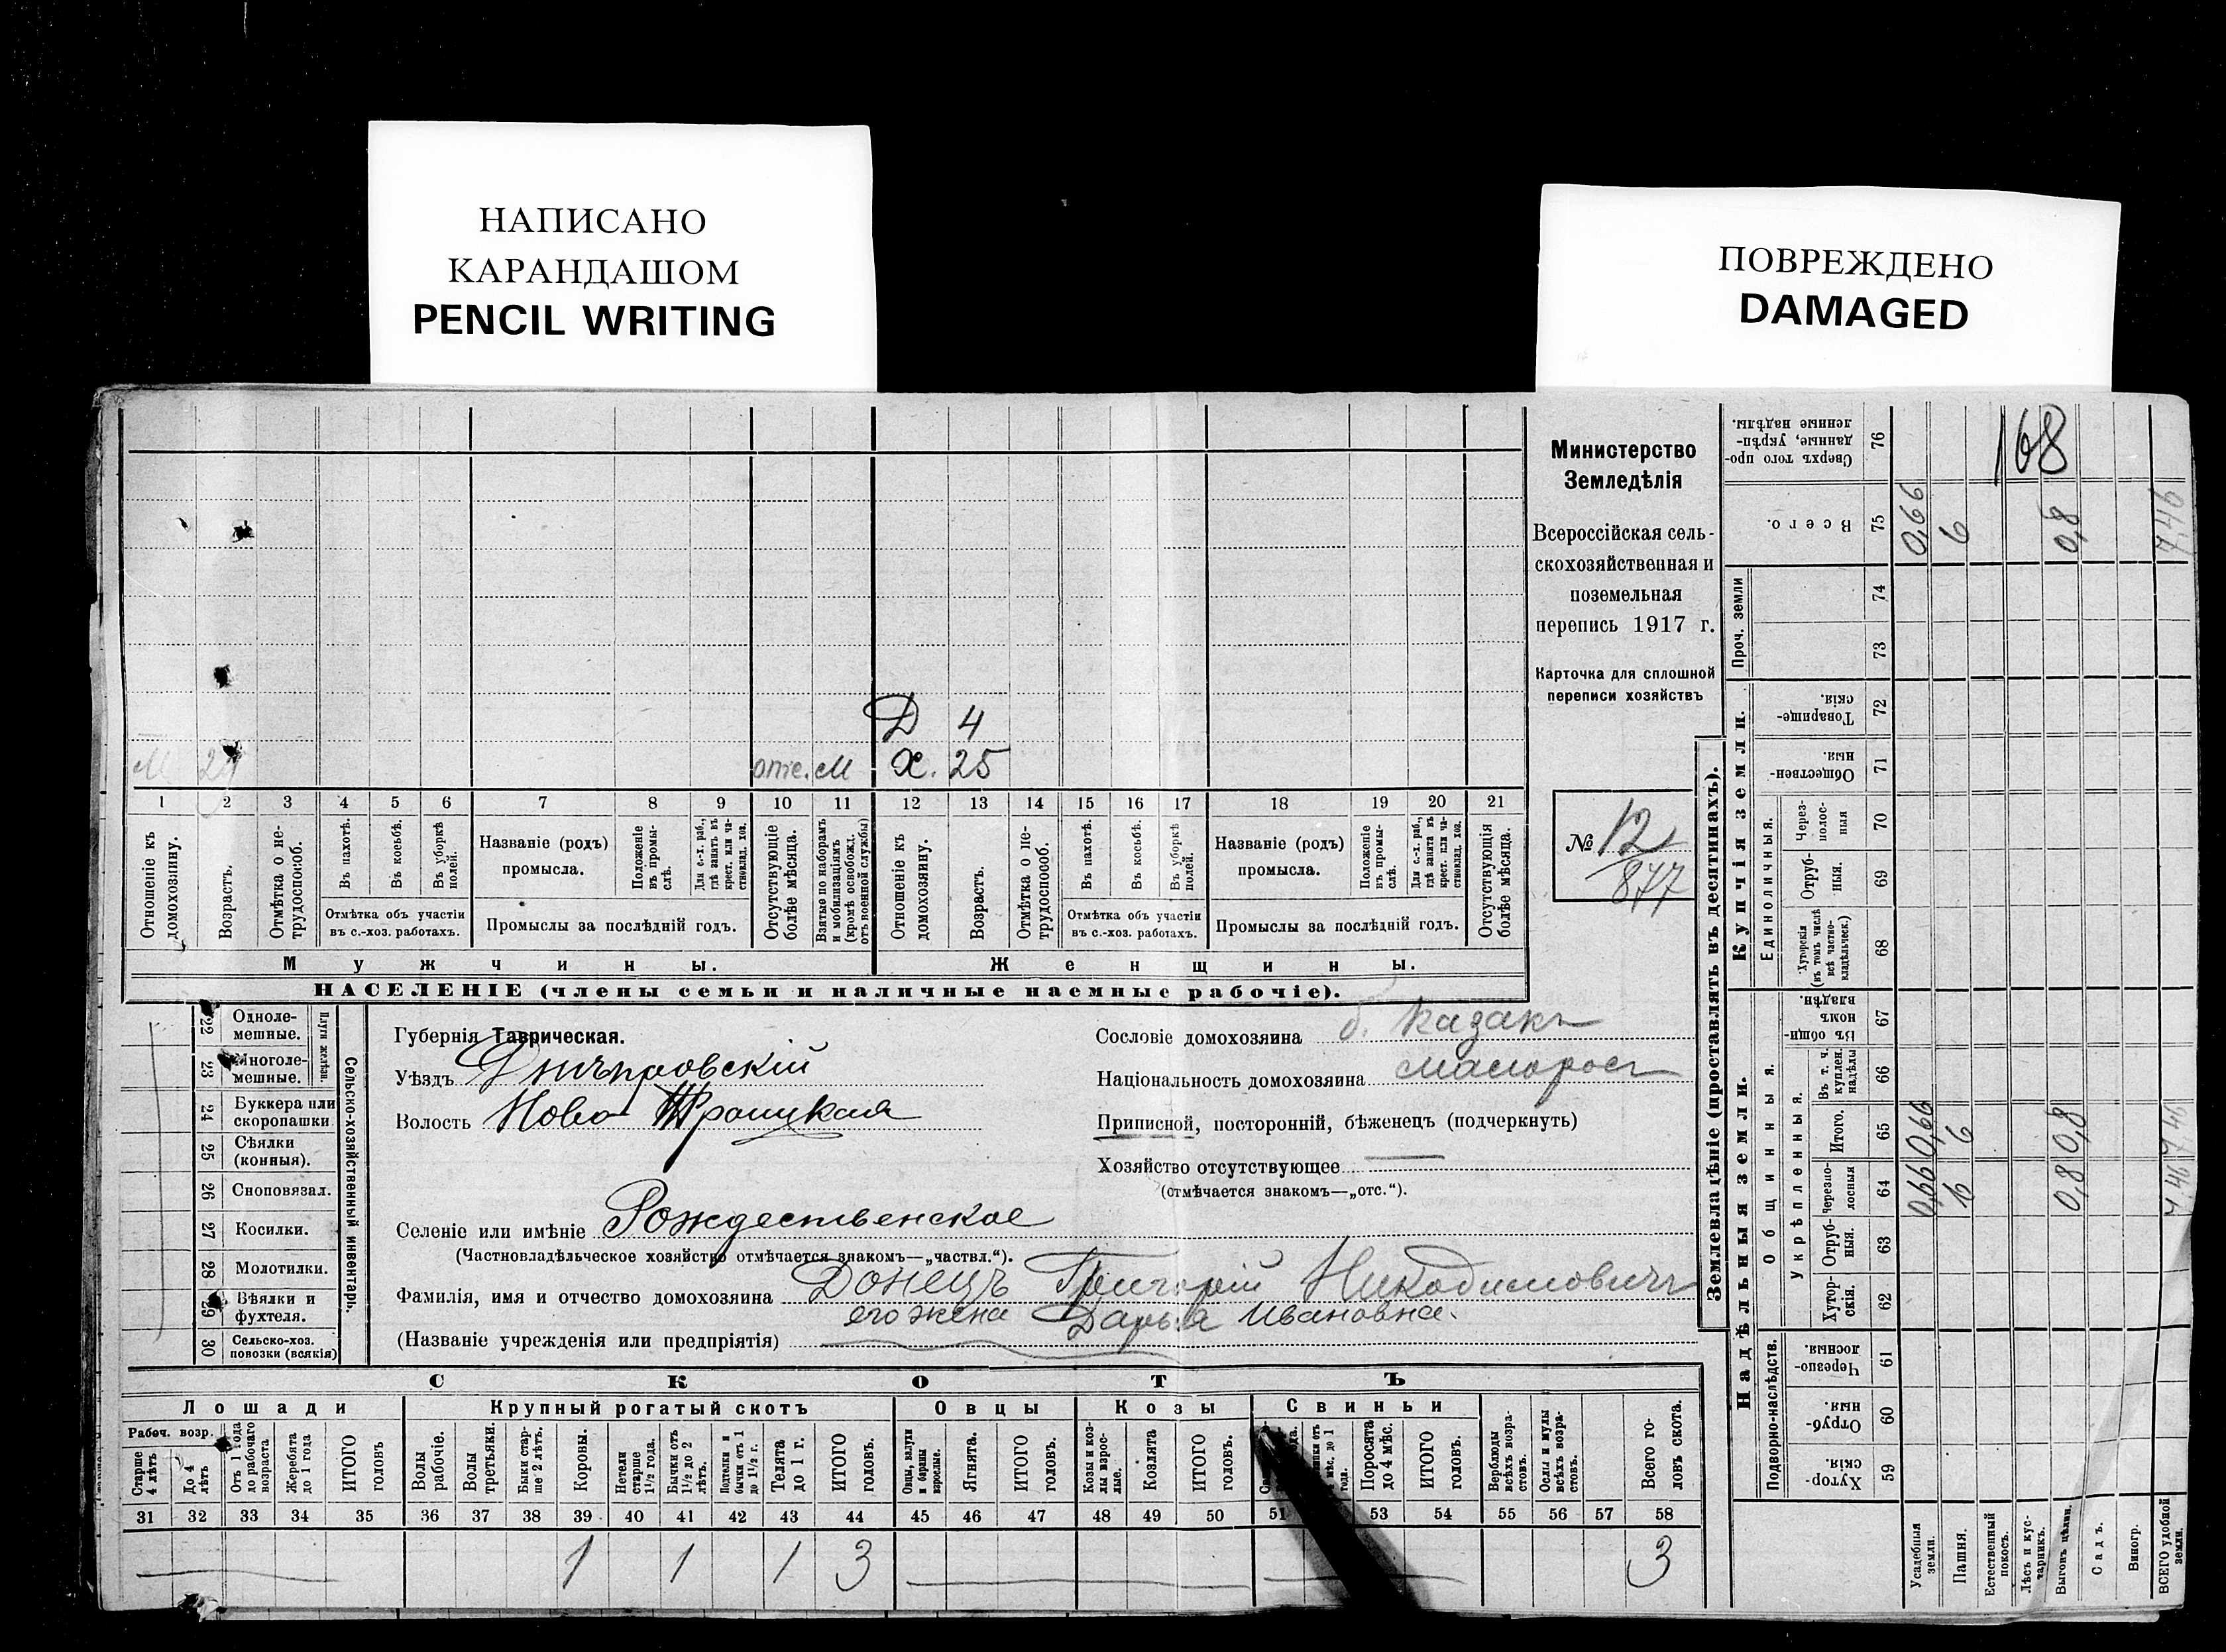 НАПИСАНО
КАРАНДАШОМ
PENCIL WRITING
ПОВРЕЖДЕНО
DAMAGED
Д 4
М 29 отс. М Х. 25
1 2 3 4 5 6 7 8 9 10 11 12 13 14 15 16 17 18 19 20 21
Отношеніе къ домохозяину.
Возрастъ.
Отмѣтка о нетрудоспособ.
Въ пахотѣ.
Въ косьбѣ.
Въ уборкѣ полей.
Отмѣтка объ участіи
въ с.-хоз. работахъ.
Названіе (родъ)
промысла.
Положеніе въ промыслѣ.
Для с.-х. раб., гдѣ занятъ въ крест. или частновлад. хоз.
Промыслы за послѣдній годъ.
Отсутствующіе болѣе мѣсяца.
Взятые по наборамъ и мобилизаціямъ (кромѣ освобожд. отъ военной службы)
Отношеніе къ домохозяину.
Возрастъ.
Отмѣтка о нетрудоспособ.
Въ пахотѣ.
Въ косьбѣ.
Въ уборкѣ полей.
Отмѣтка объ участіи
въ с.-хоз. работахъ.
Названіе (родъ)
промысла.
Положеніе въ промыслѣ.
Для с.-х. раб., гдѣ занята въ крест. или частновлад. хоз.
Промыслы за послѣдній годъ.
Отсутствующія болѣе мѣсяца.
Мужчины. Женщины.
НАСЕЛЕНІЕ (члены семьи и наличные наемные рабочіе).
Министерство
Земледѣлія
Всероссійская сель-
скохозяйственная и
поземельная
перепись 1917 г.
Карточка для сплошной
переписи хозяйствъ
№ 12
877
22 Одноле-
мешные.
23 Многоле-
мешные.
Плуги желѣзн.
24 Буккера или
скоропашки
25 Сѣялки
(конныя).
26 Сноповязал.
27 Косилки.
28 Молотилки.
29 Вѣялки и
фухтеля.
30 Сельско-хоз.
повозки (всякія)
Сельско-хозяйственный инвентарь.
Губернія Таврическая.
Уѣздъ Днѣпровскій
Волость Ново Троицкая
Селеніе или имѣніе Рождественское
(Частновладѣльческое хозяйство отмѣчается знакомъ—„частвл.“).
Фамилія, имя и отчество домохозяина Донецъ Григорій Никодимовичъ
его жена Дарья Ивановна.
(Названіе учрежденія или предпріятія)
Сословіе домохозяина б. казакъ
Національность домохозяина малоросъ
Приписной, посторонній, бѣженецъ (подчеркнуть)
Хозяйство отсутствующее
(отмѣчается знакомъ—„отс.“).
СКОТЪ
Лошади Крупный рогатый скотъ Овцы Козы Свиньи
Рабоч. возр.
Старше 4 лѣтъ
До 4 лѣтъ
Отъ 1 года до рабочаго возраста
Жеребята до 1 года
ИТОГО головъ
Волы рабочіе.
Волы третьяки.
Быки старше 2 лѣтъ.
Коровы.
Нетели старше 1½ года.
Бычки отъ 1½ до 2 лѣтъ.
Подтелки и бычки отъ 1 до 1½ г.
Телята до 1 г.
ИТОГО головъ.
Овцы, валухи и бараны взрослые.
Ягнята.
ИТОГО головъ.
Козы и козлы взрослые.
Козлята
ИТОГО головъ.
Поросята до 4 мѣс.
ИТОГО головъ.
Верблюды всѣхъ возрастовъ.
Ослы и мулы всѣхъ возрастовъ.
Всего головъ скота.
31 32 33 34 35 36 37 38 39 40 41 42 43 44 45 46 47 48 49 50 51 53 54 55 56 57 58
1 1 1 3 3
Землевладѣніе (проставлять въ десятинахъ).
Надѣльныя земли. Купчія земли. Проч. земли
Подворно-наслѣдств. Общинныя. Укрѣпленныя. Единоличныя.
Хутор-
скія. 59
Отруб-
ныя. 60
Черезпо-
лосныя 61
Хутор-
скія. 62
Отруб-
ныя. 63
Черезпо-
лосныя 64
Итого. 65
Въ т. ч. куплен. надѣлы 66
Въ общин-
номъ
владѣн. 67
Хуторскія (въ томъ числѣ всѣ частновладѣльческ.) 68
Отруб-
ныя. 69
Через-
полос-
ныя 70
Обществен-
ныя 71
Товарище-
скія. 72
73
74
Всего. 75
Сверхъ того про-
данные, укрѣп-
ленные надѣлы. 76
Усадебныя земли. 0,66 0,66 0,66
Пашня. 6 6 6
Естественный покосъ.
Лѣсъ и кустарникъ.
Выгонъ цѣлин. 0,8 0,8 0,8
Садъ.
Виногр.
ВСЕГО удобной земли. 7,46 7,46 7,46
168